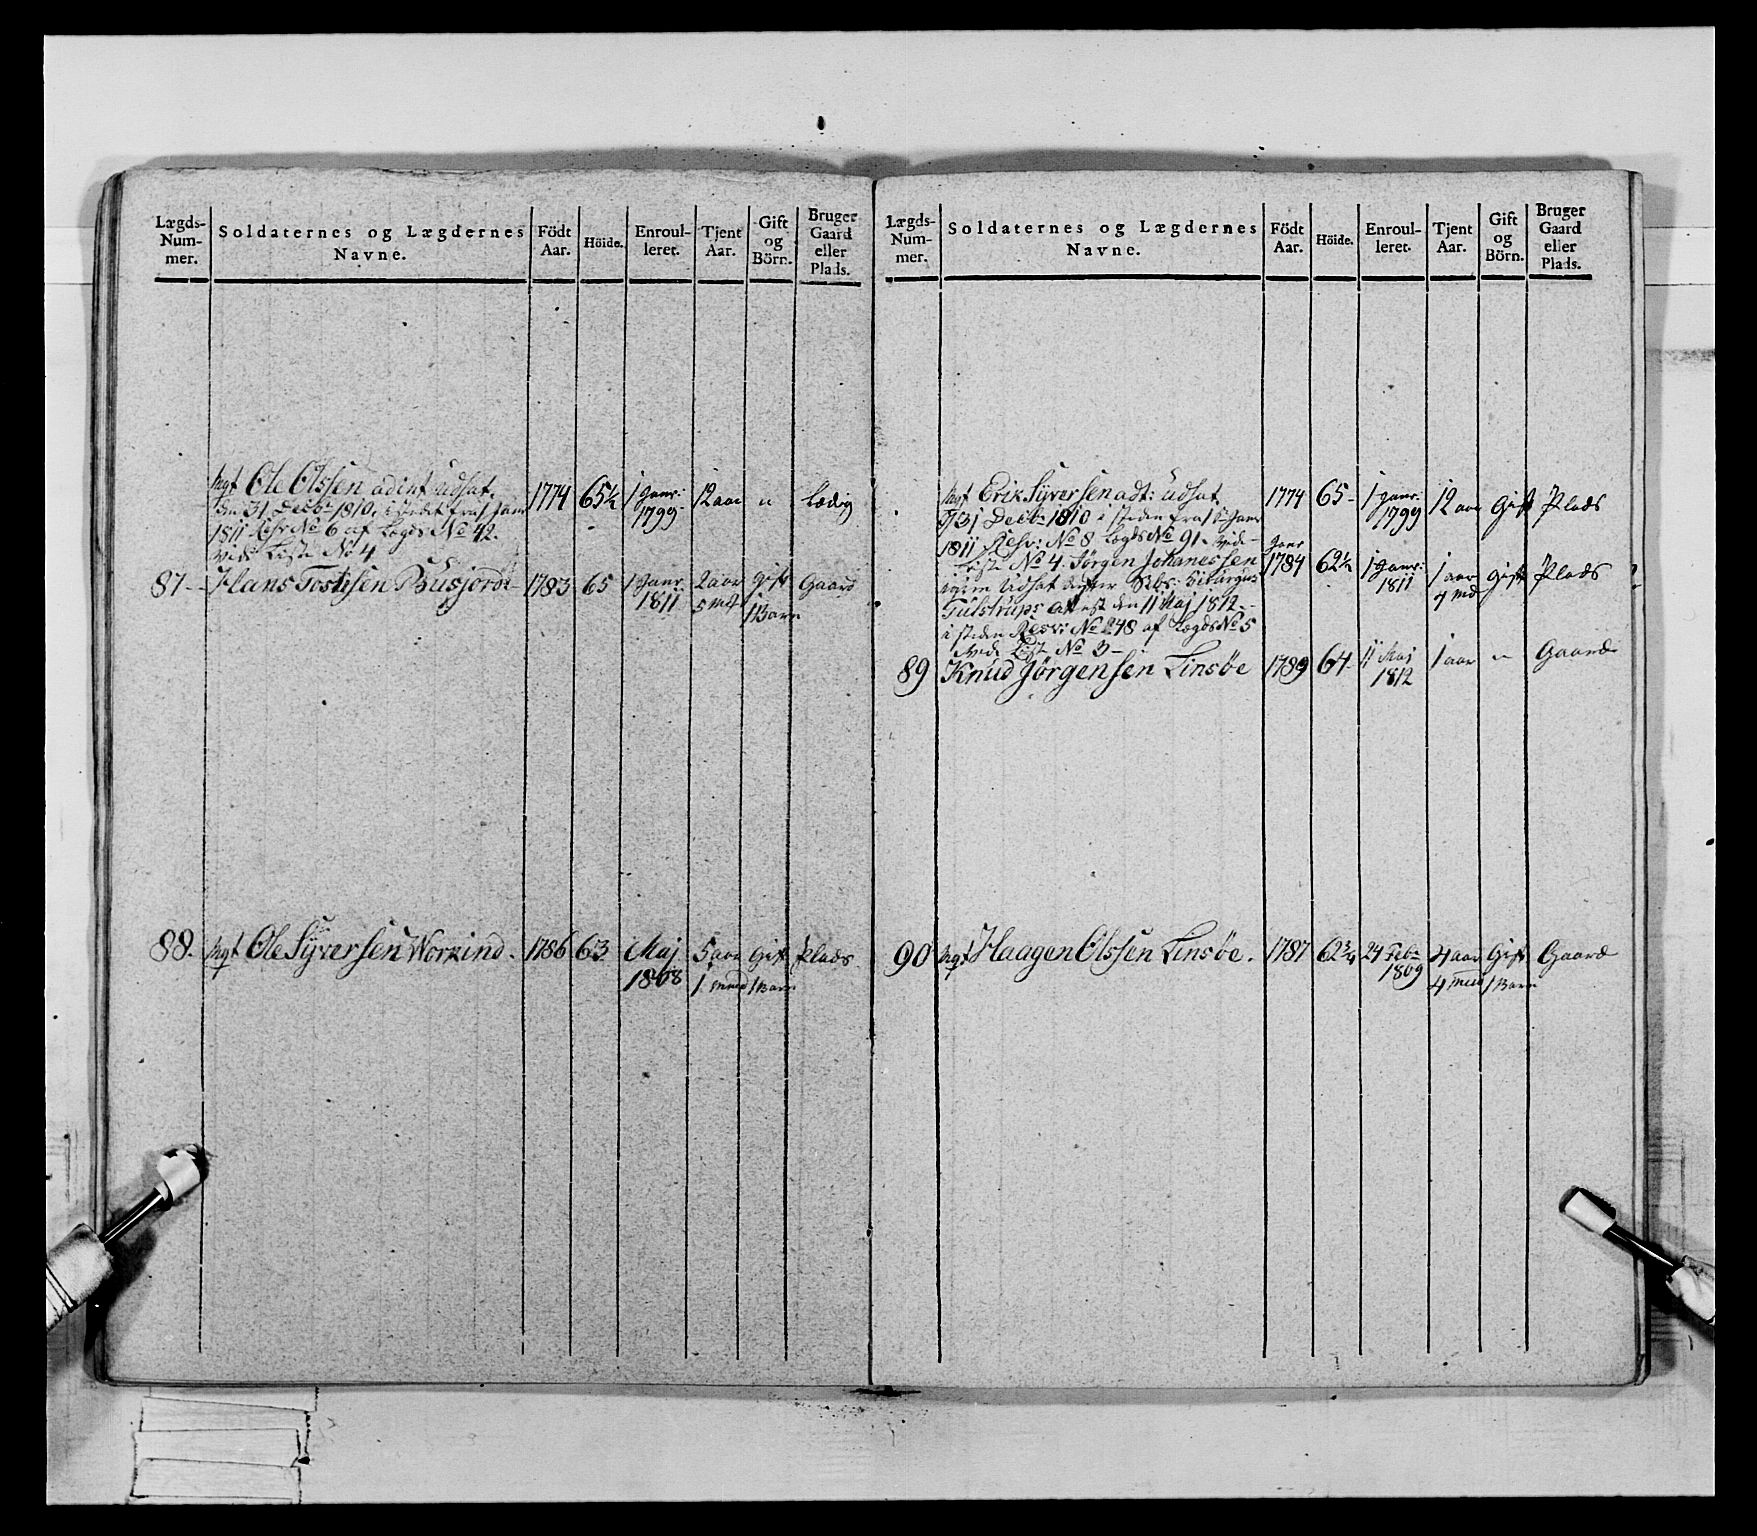 Lægds-Num-mer. Soldaternes og Lægdernes Navne. Födt Aar. Höide. Enroul-leret. Tjent Aar. Gift og Börn. Bruger Gaard eller Plads.
Ole Olssen udsat. 1774 65½ 1 Janr: 1799 12 aar " Lædig
den 31 Decbr 1810, i stedet fra 1 Janr
1811 Resv: No 6 af Lægds No 42.
vide Liste No 4
87 Hans Tostesen Busjorde 1783 65 1 Janr 1811 2 aar 5 Md Gift 1 Barn Gaard
88. Ole Syversen Wornind. 1786 63 Maj 1808 5 aar 1 mnd Gift 1 Barn Plads
Lægds-Num-mer. Soldaternes og Lægdernes Navne. Födt Aar. Höide. Enroul-leret. Tjent Aar. Gift og Börn. Bruger Gaard eller Plads.
Erik Syversen adt: udsat 1774 65 1 Janr: 1799 12 aar Gift Plads
31 Decbr 1810 i steden fra 1ste Janr
1811 Resv: No 8 Lægds No 91. Vide
Liste No 4. Jørgen Johanessen 1784 62½ 1 Janr: 1811 1 aar 4 Md gift Plads
igjen Udsat efter
Gulstrups Attest den 11 Maj 1812.
i steden Resv: No 148 af Lægds No 5
Vide List No 3
89 Knud Jørgensen Linsøe 1789 64 11 Maj 1812 1 aar " Gaard
90 Haagen Olssen Linsøe. 1787 62¾ 24 Febr 1809 4 aar 4 mnd Gift 1 Barn Gaard